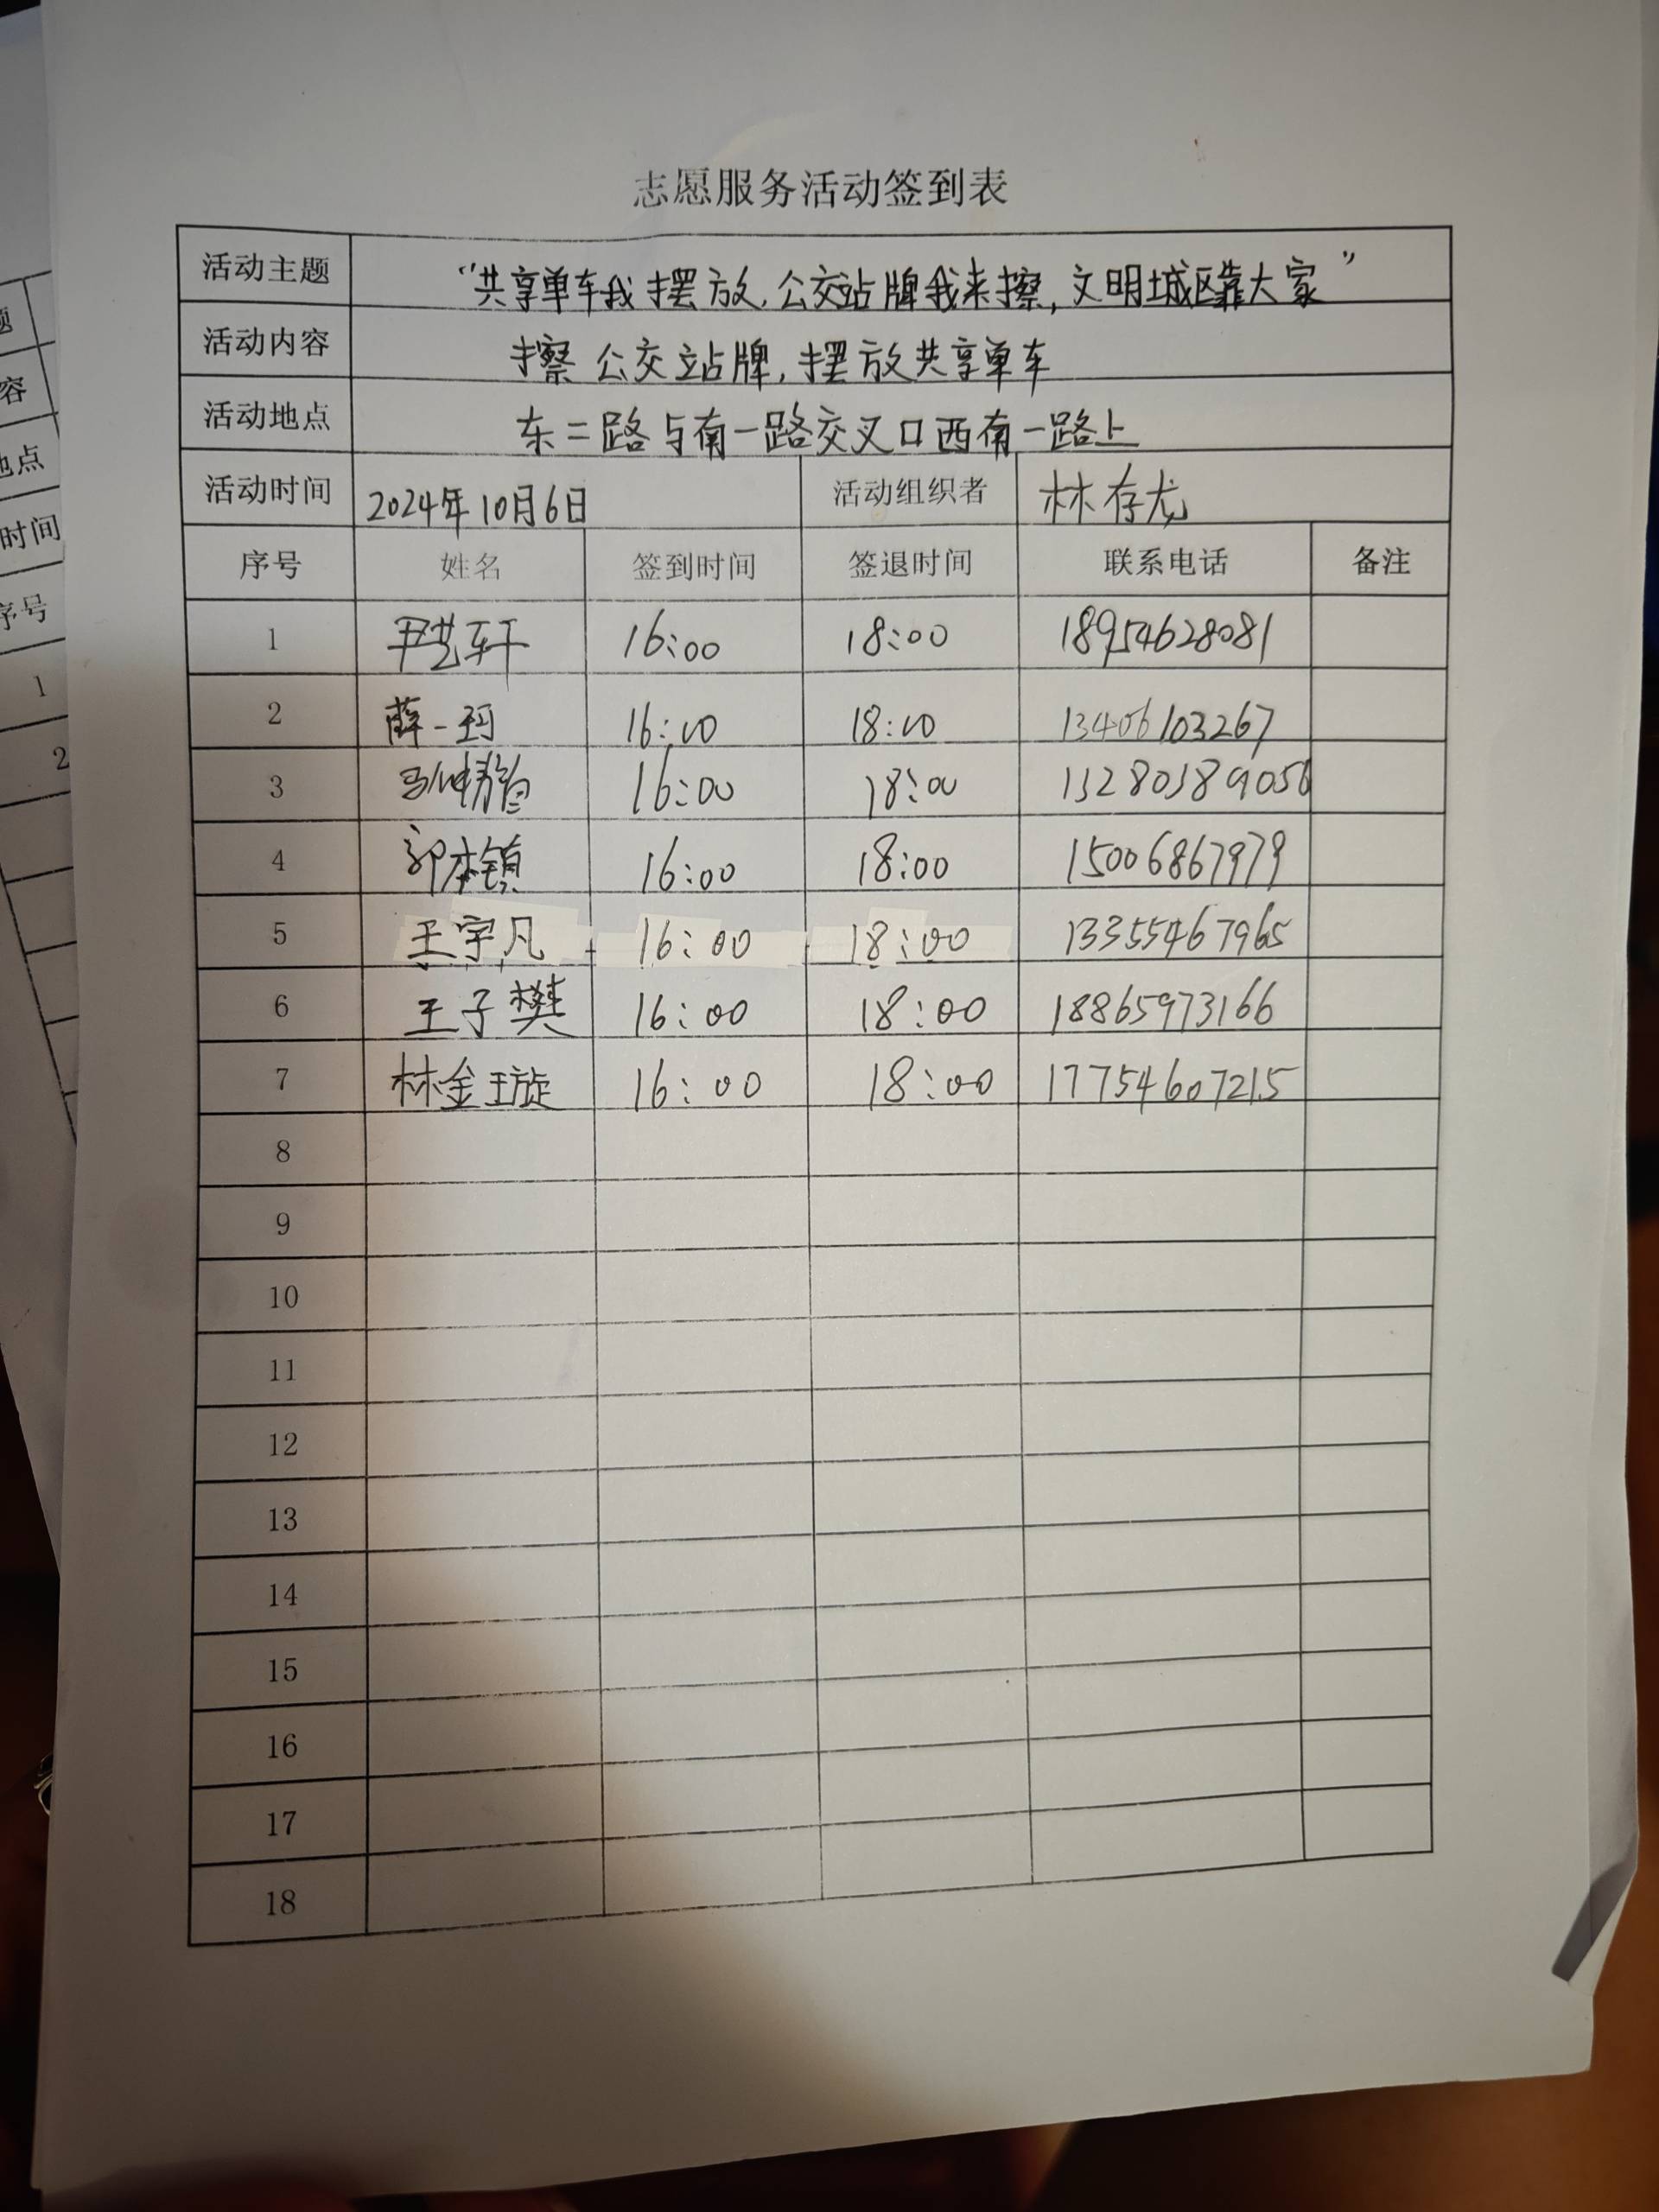 志愿服务活动签到表
活动主题 “共享单车我摆放，公交站牌我来擦，文明城区靠大家”
活动内容 擦公交站牌，摆放共享单车
活动地点 东二路与南一路交叉口西南一路上
活动时间 2024年10月6日 活动组织者 林存龙
序号 姓名 签到时间 签退时间 联系电话 备注
1 尹艺轩 16:00 18:00 18954628081
2 薛一珂 16:00 18:00 13406103267
3 16:00 18:00
4 郭本镇 16:00 18:00 15006867979
5 王宇凡 16:00 18:00 13355467965
6 王子樊 16:00 18:00 18865973166
7 林金璇 16:00 18:00 17754607215
8
9
10
11
12
13
14
15
16
17
18
题
容
地点
时间
序号
1
2